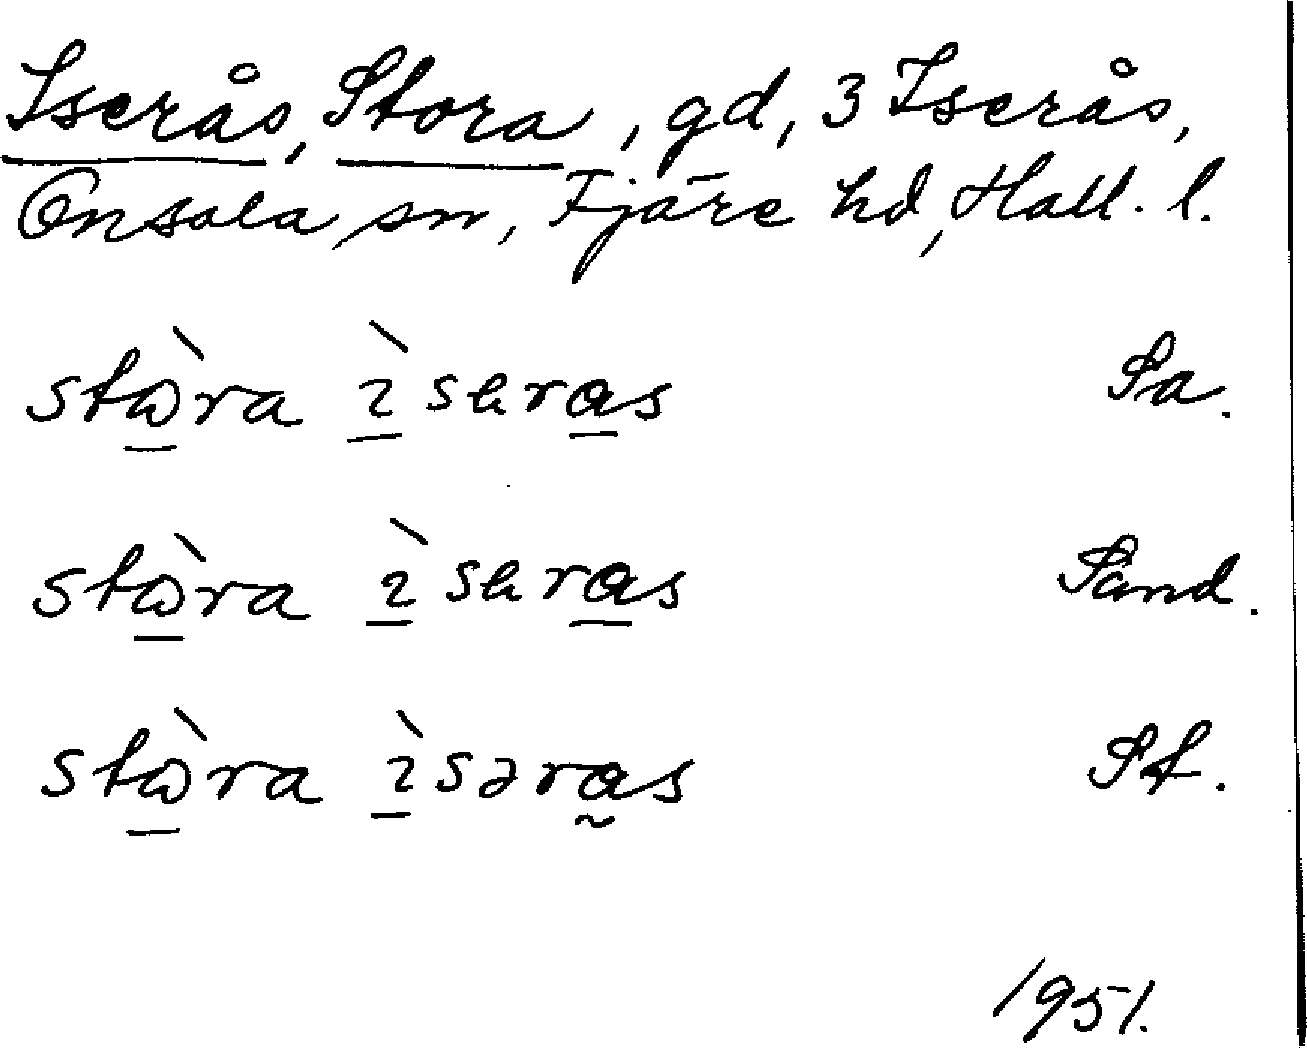 Iserås, Stora, gd, 3 Iserås,
Onsala sn, Fjäre hd, Hall. l.
stὼ̲ra ı̲̀sera̲s Sa.
stὼ̲ra ı̲̀sera̲s Sand.
stὼ̲ra ı̲̀səra̰s St.
1951.